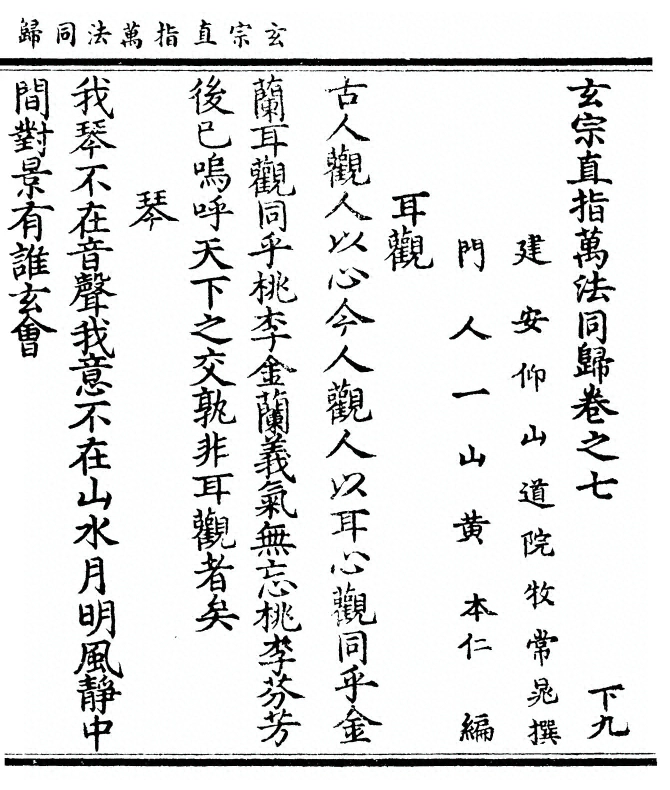 歸同法萬指直宗玄
玄宗直指萬法同歸卷之七 下九
建安仰山道院牧常晁撰
門人一山黄本仁編
耳觀
古人觀人以心今人觀人以耳心觀同乎金
蘭耳觀同乎桃李金蘭義氣無忘桃李芬芳
後已嗚呼天下之交孰非耳觀者矣
琴
我琴不在音聲我意不在山水月明風靜中
間對景有誰玄會